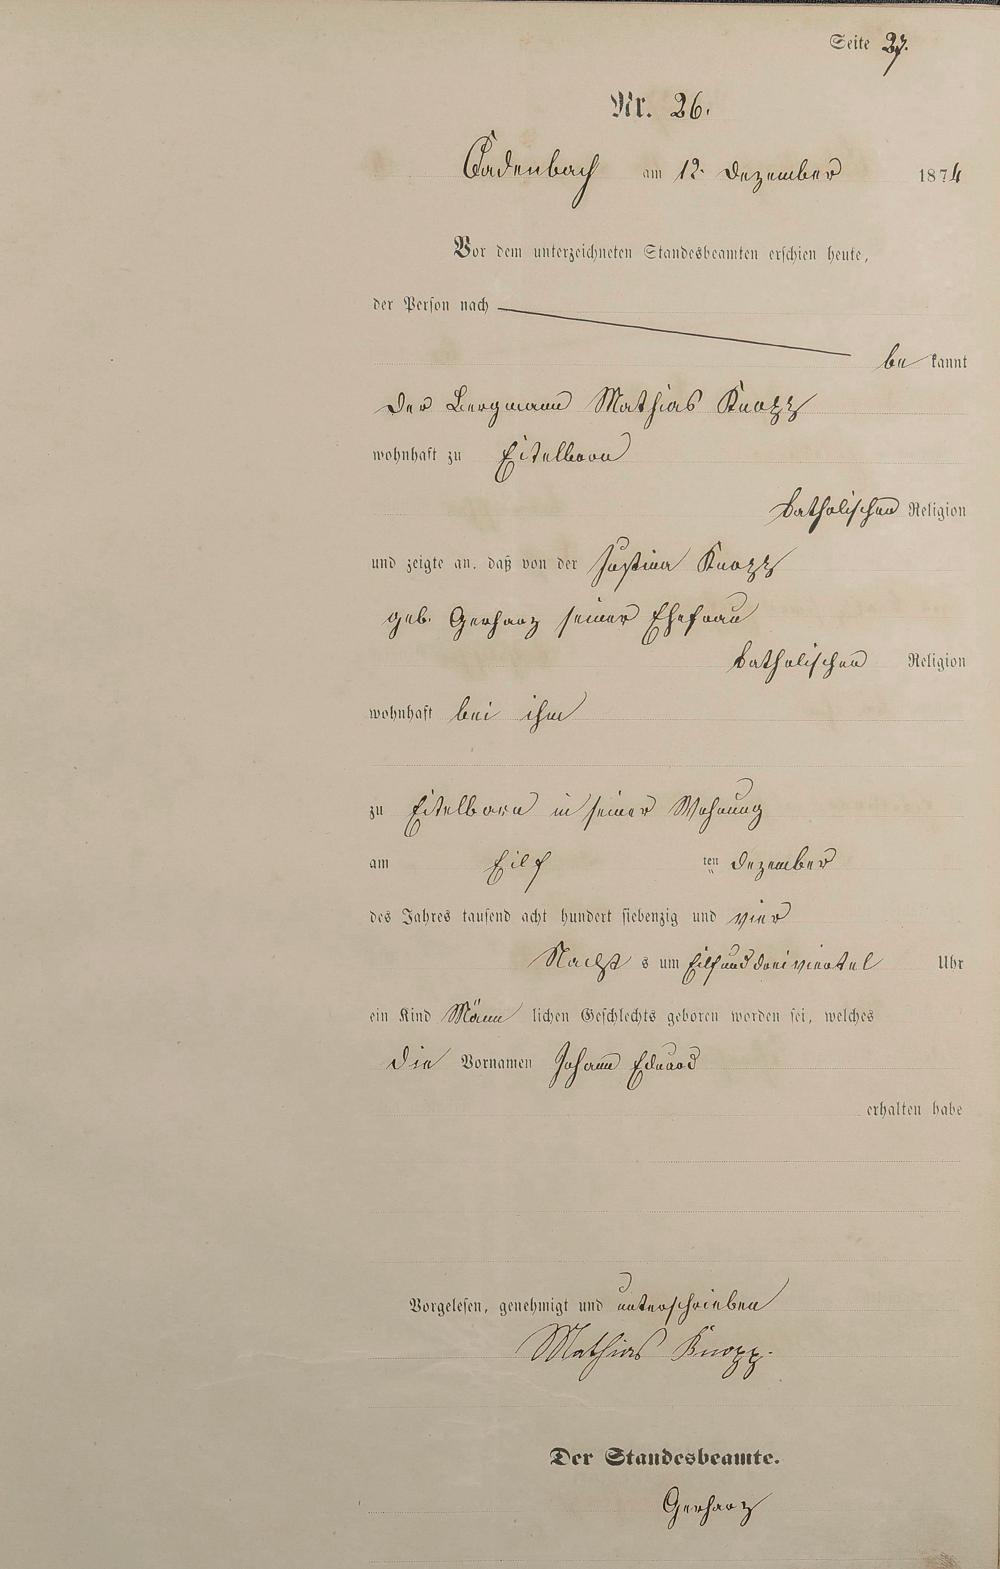 Seite 27.
Nr. 26.
Cadenbach am 12. Dezember 1874
Vor dem unterzeichneten Standesbeamten erschien heute,
der Person nach
bekannt
der Bergmann Mathias Knopp
wohnhaft zu Eitelborn
katholischen Religion
und zeigte an, daß von der Justina Knopp
geb. Gerharz seiner Ehefrau
katholischen Religion
wohnhaft bei ihm
zu Eitelborn in seiner Wohnung
am Eilf ten Dezember
des Jahres tausend acht hundert siebenzig und vier
Nachts um Eilf und dreiviertel Uhr
ein Kind Männlichen Geschlechts geboren worden sei, welches
die Vornamen Johann Eduard
erhalten habe
Vorgelesen, genehmigt und unterschrieben
Mathias Knopp.
Der Standesbeamte.
Gerharz